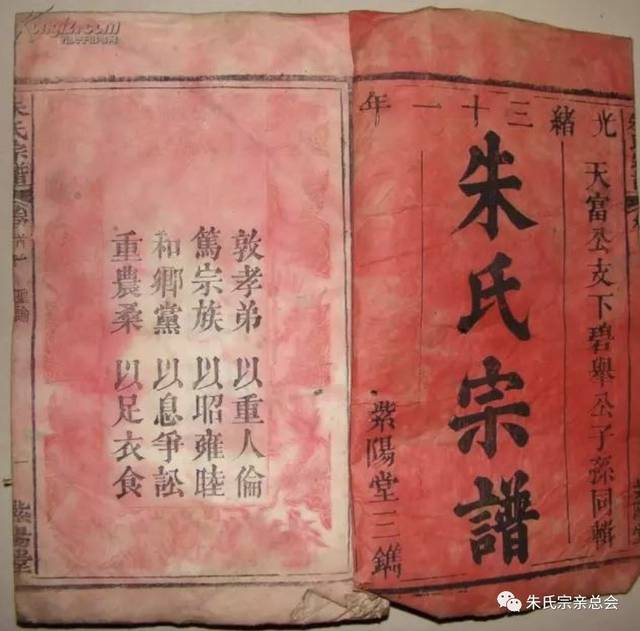 光緒三十一年
天富公支下碧舉公子孫同輯
朱氏宗譜
紫陽堂三鐫
敦孝弟 以重人倫
篤宗族 以昭雍睦
和鄉黨 以息爭訟
重農桑 以足衣食
朱氏宗譜
卷首
聖諭
一
紫陽堂
朱氏宗亲总会